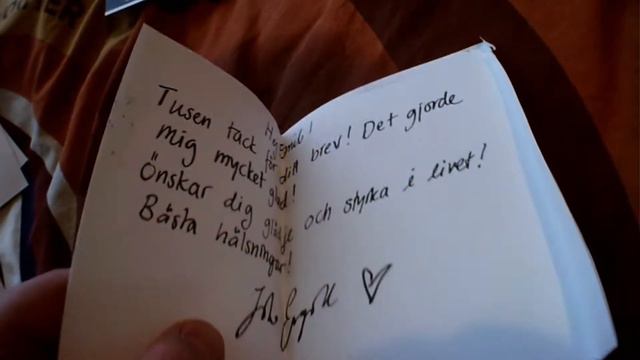 Hej
Tusen tack för ditt brev! Det gjorde
mig mycket glad!
Önskar dig glädje och styrka i livet!
Bästa hälsningar!